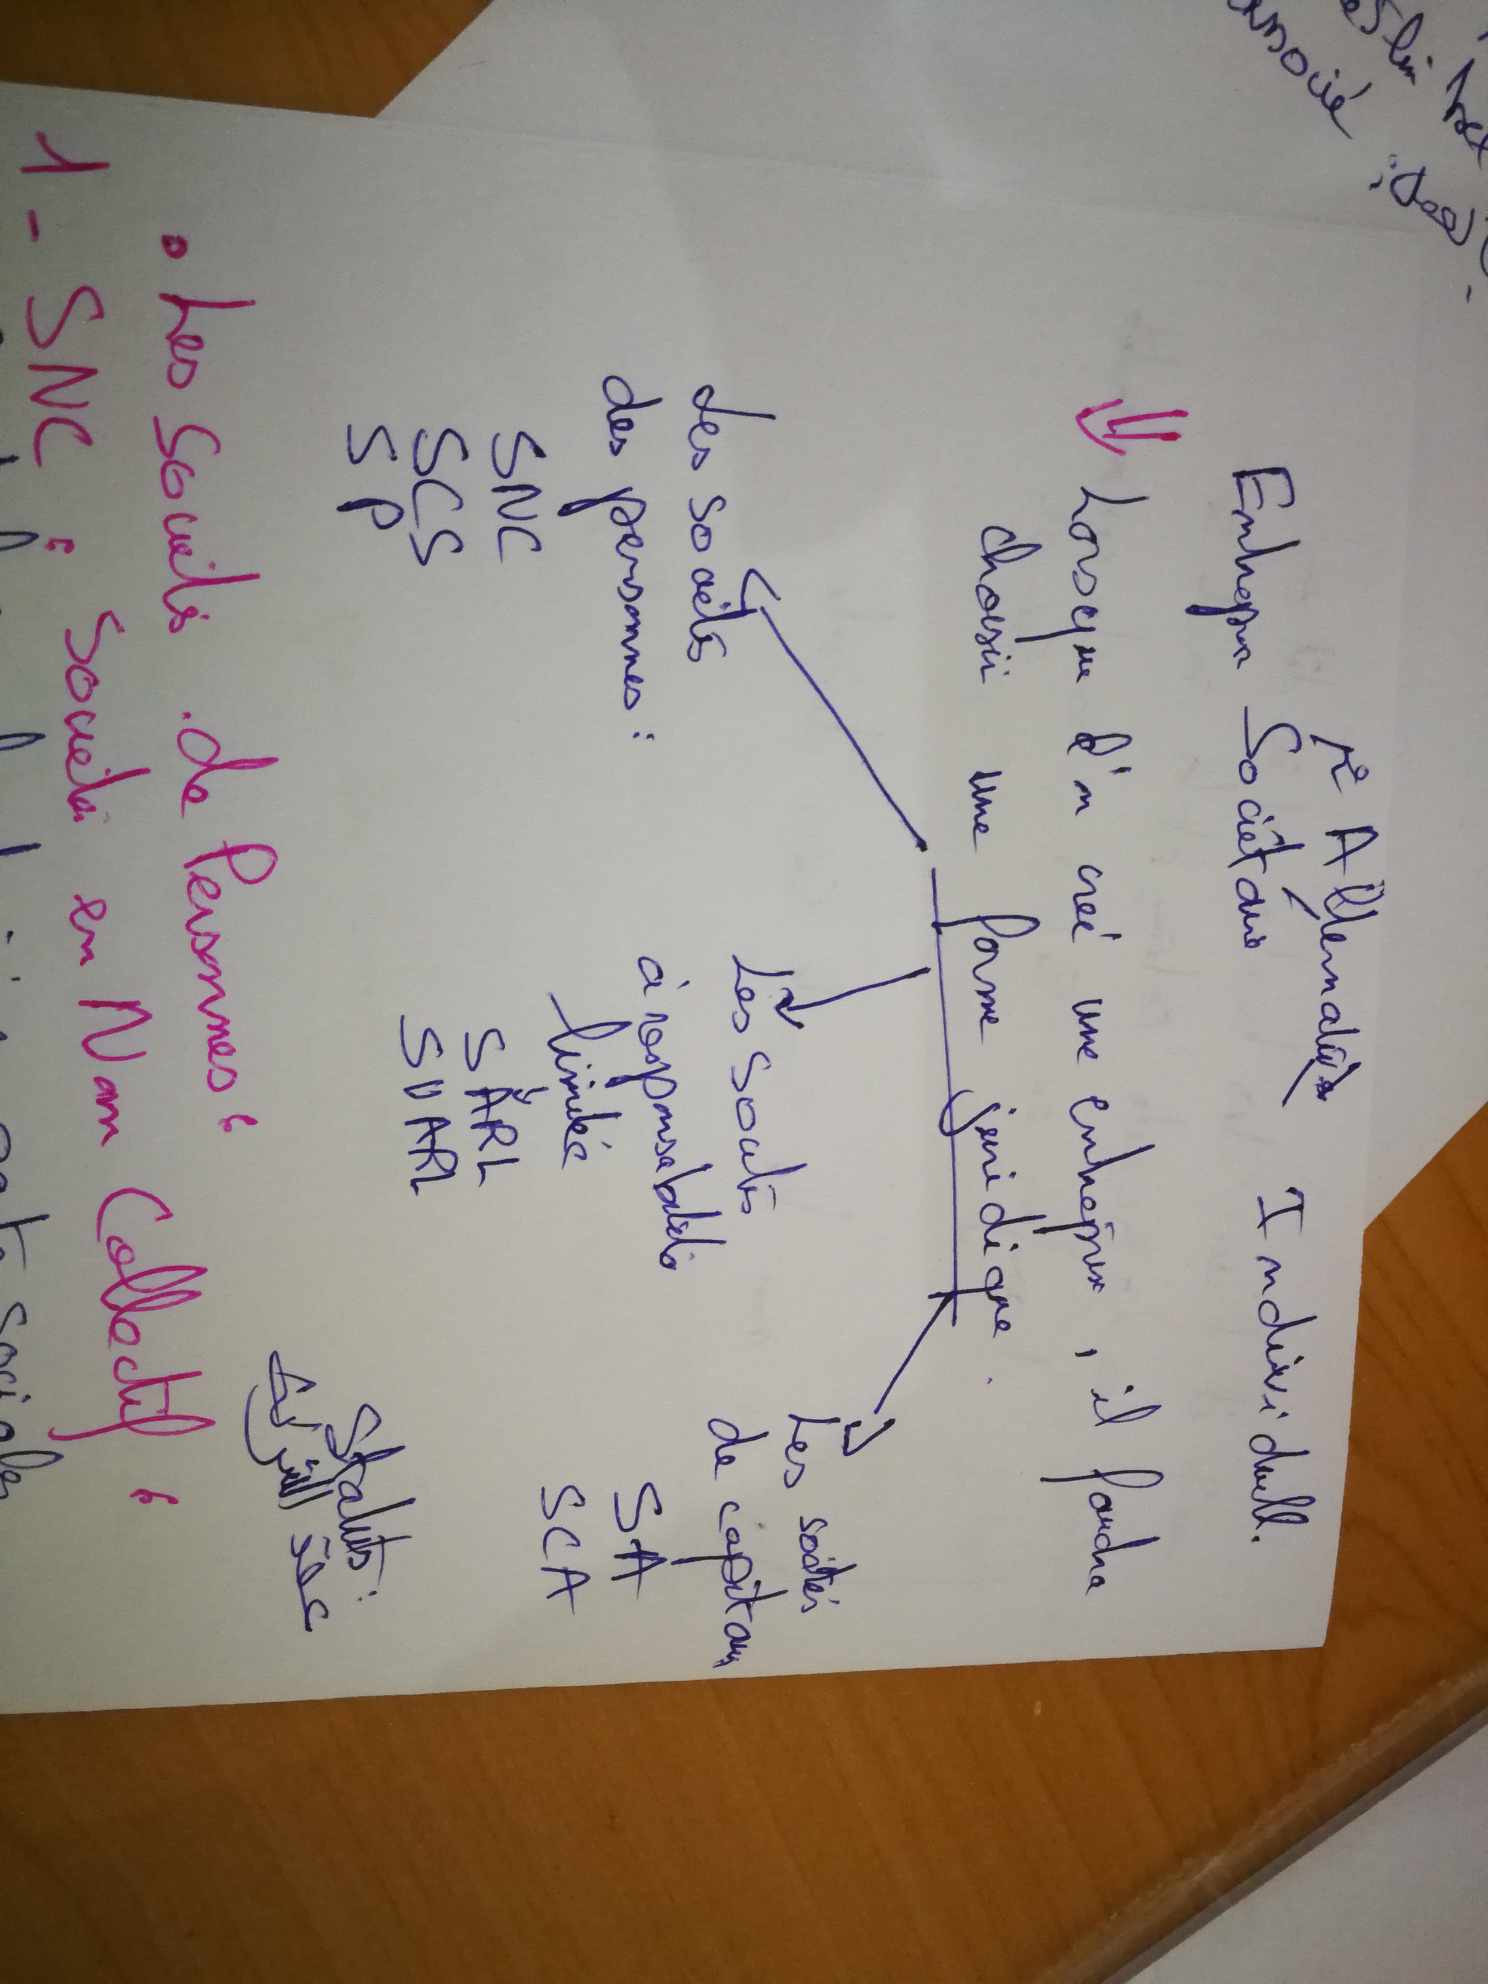 2 Alternatives
Entreprise Sociétaire Individuelle.
Lorsque l'on crée une entreprise, il faudra
choisir une forme juridique.
Les sociétés
des personnes :
SNC
SCS
SP
Les sociétés
à responsabilité
limitée
SARL
SUARL
Les sociétés
de capitaux
SA
SCA
Statuts :
عقد الشركة
• Les Sociétés de Personnes :
1- SNC : Société en Nom Collectif :
sociales
associé